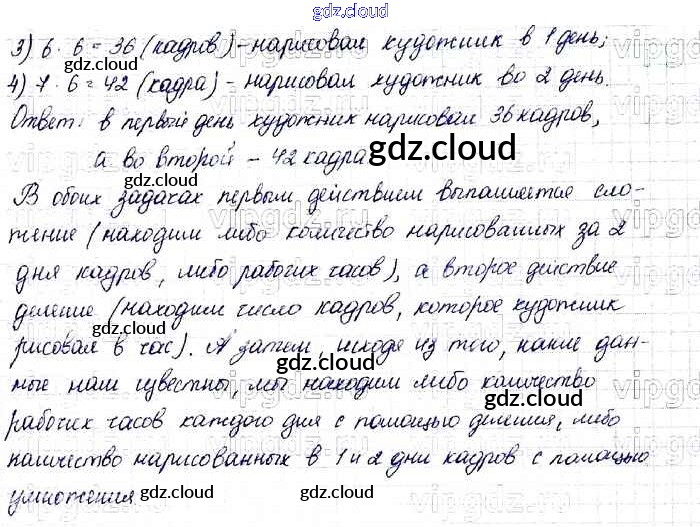 gdz.cloud
3) 6 · 6 = 36 (кадров) - нарисовал художник в 1 день;
4) 7 · 6 = 42 (кадра) - нарисовал художник во 2 день.
Ответ: в первый день художник нарисовал 36 кадров,
а во второй - 42 кадра
gdz.cloud
В обоих задачах первым действием выполняется сло-
gdz.cloud
жение (находим либо количество нарисованных за 2
дня кадров, либо рабочих часов), а второе действие
деление (находим число кадров, которое художник
gdz.cloud
рисовал в час). А затем, исходя из того, какие дан-
gdz.cloud
ные нам известны, мы находим либо количество
gdz.cloud
рабочих часов каждого дня с помощью деления, либо
количество нарисованных в 1 и 2 дни кадров с помощью
умножения
gdz.cloud
gdz.cloud
vipgdz.ru